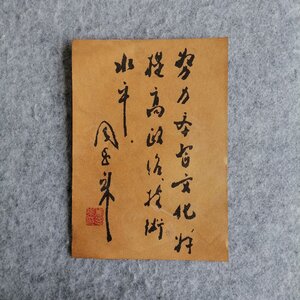 努力学习文化科
提高政治、技術
水平.
周恩来